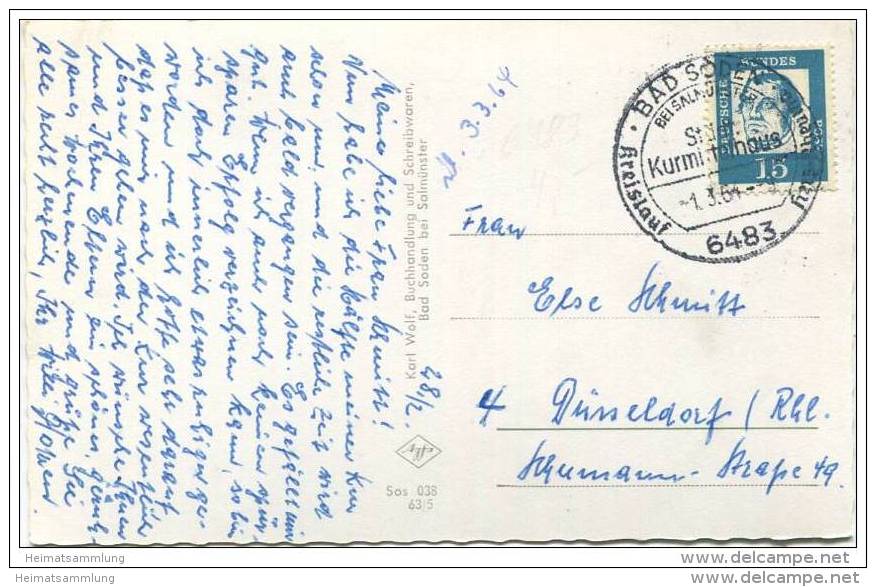 28/2.
Meine liebe Frau Schmitt!
Nun habe ich die Hälfte meiner Kur
schon um, und die restliche Zeit wird
auch bald vergangen sein. Es gefällt mir
gut. Wenn ich auch noch keinen
sparen Erfolg verzeichnen kann, so bin
ich doch innerlich etwas ruhiger ge-
worden und ich hoffe sehr darauf
daß es mir nach der Kur wesentlich
besser gehen wird. Ich wünsche Ihnen
und Ihren Eltern ein schönes,
Wochenende und grüße Sie
alle recht herzlich, Ihr Willi
Karl Wolf, Buchhandlung und Schreibwaren,
Bad Soden bei Salmünster
Sos 038
63/5
3.3.64
BAD SODEN
BEI SALMÜNSTER
Kurmittelhaus
-1.3.64
6483
DEUTSCHE BUNDESPOST
15
Frau
Else Schmitt
4 Düsseldorf / Rhl.
Schumann-Straße 49.
Heimatsammlung
Heimatsammlung
www.delcampe.net
www.delcampe.net